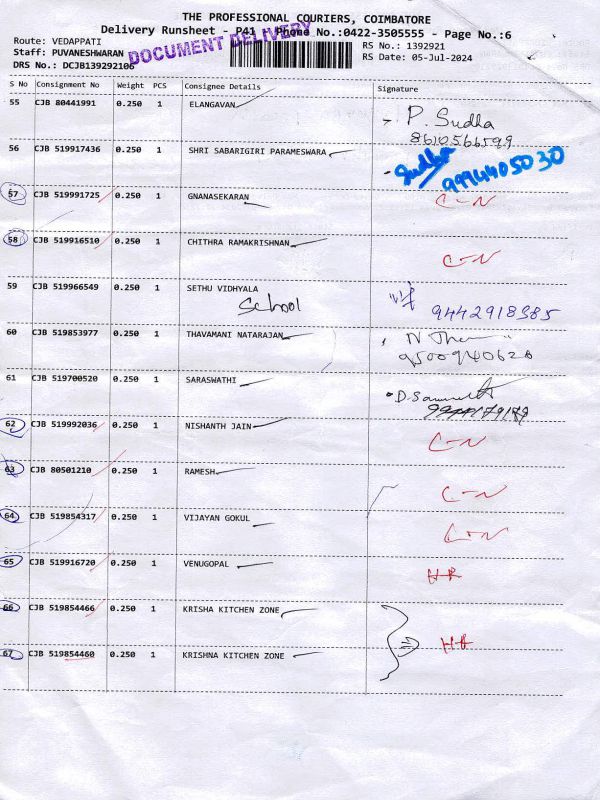 THE PROFESSIONAL COURIERS, COIMBATORE
Delivery Runsheet - P41 - Phone No.:0422-3505555 - Page No.:6
Route: VEDAPPATI
RS No.: 1392921
Staff: PUVANESHWARAN
DOCUMENT DELIVERY
RS Date: 05-Jul-2024
DRS No.: DCJB139292106
S No Consignment No Weight PCS Consignee Details Signature
55 CJB 80441991 0.250 1 ELANGAVAN P. Sudha
8610566599
56 CJB 519917436 0.250 1 SHRI SABARIGIRI PARAMESWARA Sudha
9994405030
57 CJB 519991725 0.250 1 GNANASEKARAN C-N
58 CJB 519916510 0.250 1 CHITHRA RAMAKRISHNAN C-N
59 CJB 519966549 0.250 1 SETHU VIDHYALA
School 9442918385
60 CJB 519853977 0.250 1 THAVAMANI NATARAJAN
9500940620
61 CJB 519700520 0.250 1 SARASWATHI
62 CJB 519992036 0.250 1 NISHANTH JAIN C-N
63 CJB 80501210 0.250 1 RAMESH C-N
64 CJB 519854317 0.250 1 VIJAYAN GOKUL C-N
65 CJB 519916720 0.250 1 VENUGOPAL
66 CJB 519854466 0.250 1 KRISHA KITCHEN ZONE
67 CJB 519854460 0.250 1 KRISHNA KITCHEN ZONE